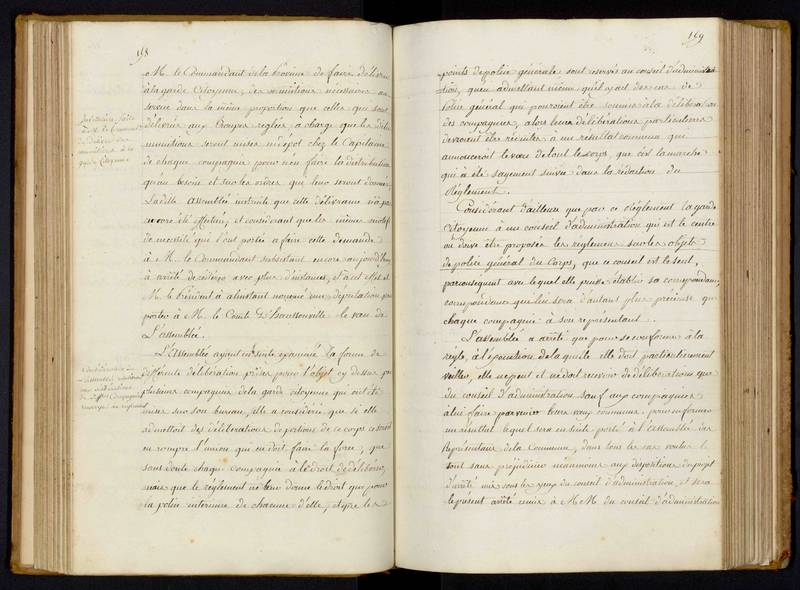 198
M. le Commandant de la Province de faire délivrer
à la garde Citoyenne, des munitions nécessaires au
service dans la même proportion que celles qui sont
délivrées aux troupes réglées, à charge que les dites
munitions seront mises en dépôt chez le Capitaine
de chaque compagnie pour n'en faire la distribution
qu'au besoin et sur les ordres qui leur seront donnés
Ladite assemblée instruite que cette délivrance n'a pas
encore été effectuée, et considérant que les mêmes motifs
de nécessité qui l'ont portée a faire cette demande
à M. le Commandant subsistant encore aujourd'hui
a arrêté de réitérer avec plus d'instances, et à cet effet
M. le Président a à l'instant nommé une députation pour
porter à M. le Comte d'haussonville le vœu de
L'assemblée.
L'Assemblée ayant ensuite examiné la forme de
différente délibération prises pour l'objet cy dessus par
plusieurs compagnies de la garde citoyenne qui ont été
mises sur son bureau, elle a considéré que si elle
admettoit des délibérations de portions de ce corps ce seroit
en rompre l'union qui en doit faire la force, que
sans doute chaque compagnie à le droit de délibérer,
mais que le règlement ne leur donne le droit que pour
la police intérieure de chacune d'elle, et que les
199
points de police générale sont reservés au conseil d'administra-
tion, qu'en admettant même qu'il y ait des cas de
Police général qui pourroient être soumis à la délibération
des compagnies, alors leurs délibérations particulieres
devroient être réduites à un resultat commun qui
annonceroit le vœu de tout le corps, que c'est la marche
qui a été sagement suivie dans la rédaction du
Réglement.
Considérant d'ailleurs que par ce Réglement la garde
Citoyenne à un conseil d'administration qui est le centre
ou doive être proposés les reglemens sur les objets
de police général du Corps, que ce conseil est le seul,
par conséquent avec lequel elle puisse établir sa correspondance,
correspondance qui lui sera d'autant plus précieuse que
chaque compagnie à son représentant.
L'assemblée a arrêté que pour se conformer à la
règle, à l'exécution de laquelle elle doit particulierement
veiller, elle ne peut et ne doit recevoir de délibérations que
du conseil d'administration, sauf aux compagnies
à lui faire parvenir leurs vœux communs, pour en former
un résultat lequel sera ensuite porté à l'assemblée des
Représentans de la Commune, dans tous les cas
le tout sans préjudicier néanmoins aux dispositions du projet
d'arrêté mis sous les yeux du conseil d'administration, et sera
le présent arrêté remis à M.M. du conseil d'administration